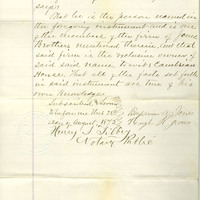 says
That he is the person named in
the foregoing instrument and is one
of the members of the firm of Jones
Brothers mentioned therein, and that
said firm is the exclusive owner of
said said name to wit: Cambrian
House. That all the facts set forth
in said instrument are true of his
own knowledge.
Subscribed & Sworn
to before me this 28th Benjamin Jones
day of August 1875 Hugh Jones
Henry J.
Notary Public